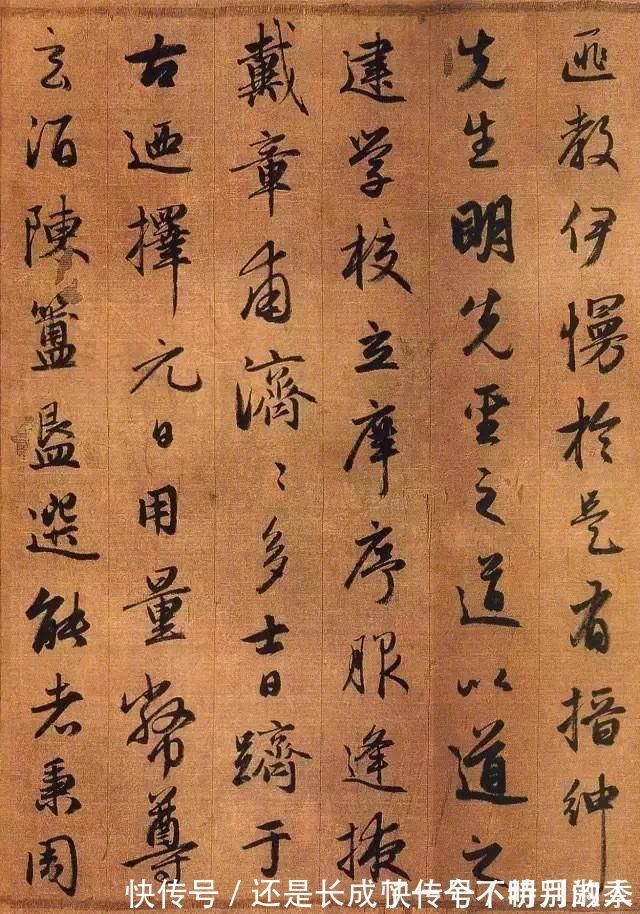 匪教伊慢於是有搢紳
先生明先聖之道以道之
建学校立庠序服逢掖
戴章甫濟〻多士日躋于
古迺擇元日用量幣尊
玄酒陳簠簋選能者秉周
快传号 / 还是长成